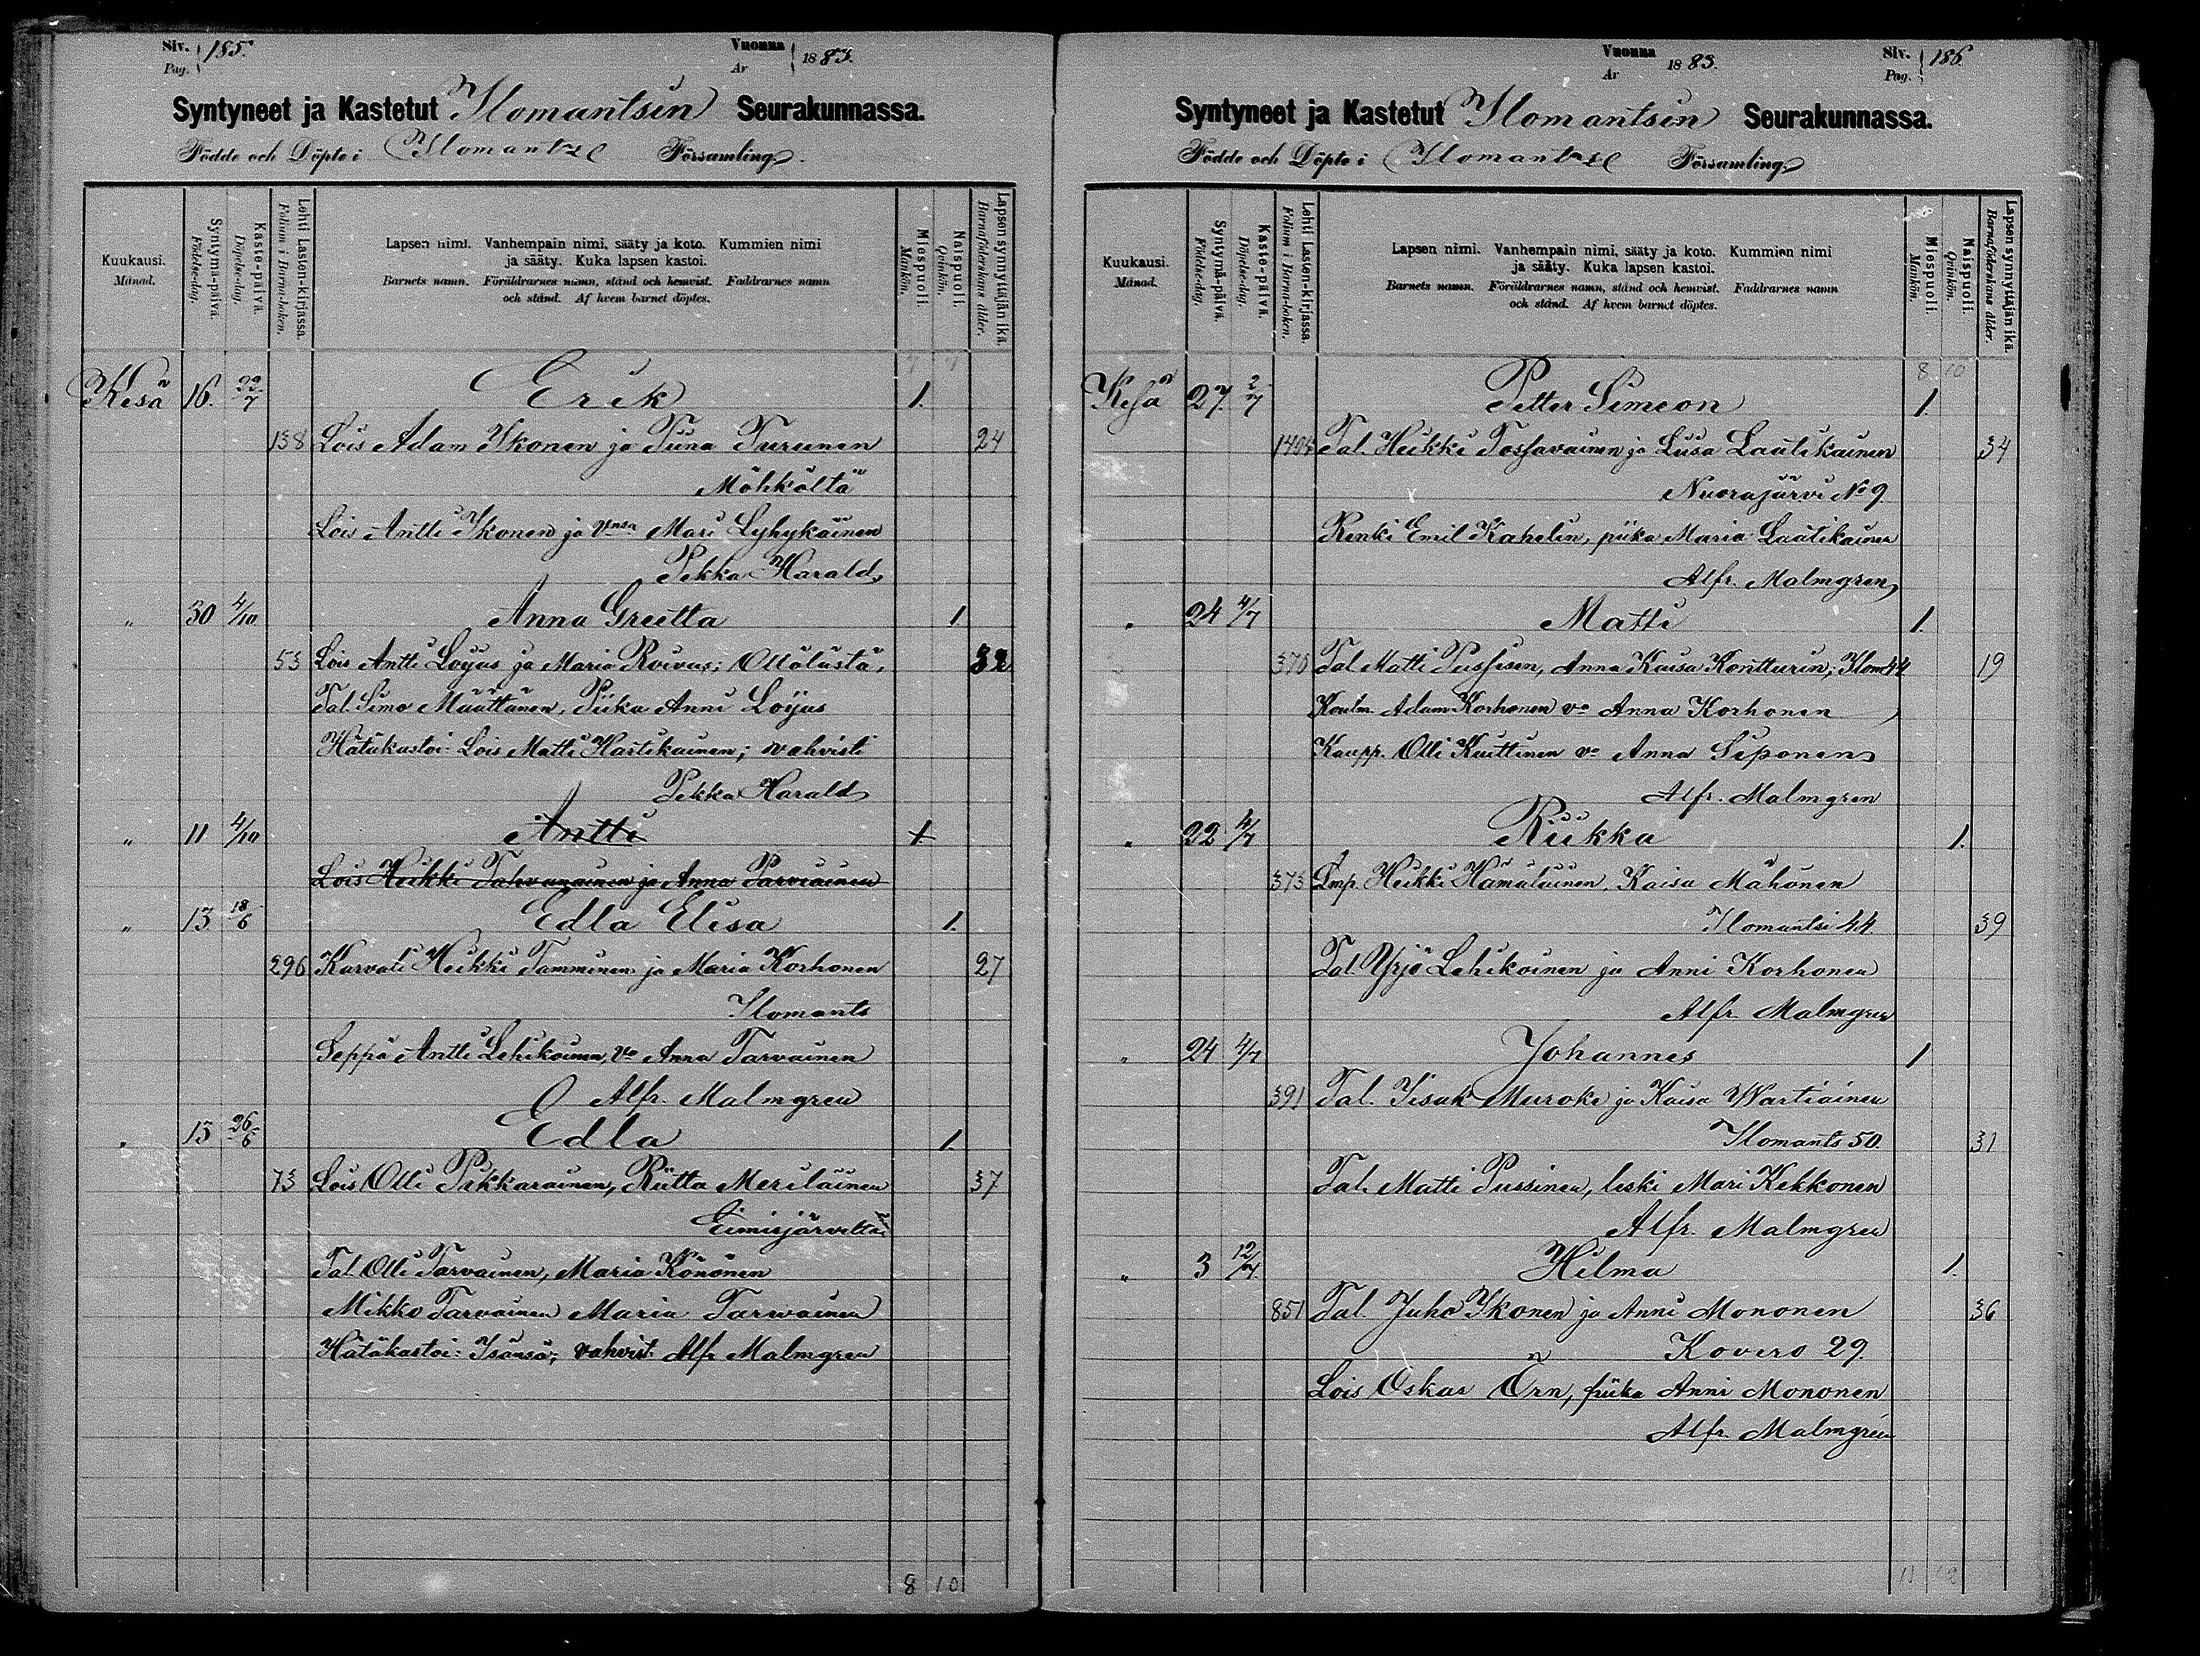 Siv. Pag. 185.
Vuonna År 1883.
Syntyneet ja Kastetut Ilomantsin Seurakunnassa.
Födde och Döpte i Ilomants Församling.
Kuukausi. Månad.
Syntymä-päivä. Födelse-dag.
Kaste-päivä. Döpelse-dag.
Lehti Lasten-kirjassa. Folium i Barna-boken.
Lapsen nimi. Vanhempain nimi, sääty ja koto. Kummien nimi
ja sääty. Kuka lapsen kastoi.
Barnets namn. Föräldrarnes namn, stånd och hemvist. Faddrarnes namn
och stånd. Af hvem barnet döptes.
Miespuoli. Mankön.
Naispuoli. Qvinkön.
Lapsen synnyttäjän ikä. Barnaföderskans ålder.
Kesä 16. 22/7 Erik 1.
138 Lois Adam Ikonen ja Tiina Turunen 24
Möhköltä
Lois Antti Ikonen ja vnsa Mari Lyhykäinen
Pekka Harald
" 30 4/10 Anna Greetta 1
53 Lois Antti Löijas ja Maria Roivas; Ollölästä. 32
Tal. Simo Määttänen, Piika Anni Löijas
Hätäkastoi: Lois Matti Hartikainen; wahvisti
Pekka Harald
" 11 4/10 Antti 1.
Lois Heikki Tahvanainen ja Anna Parviainen
" 13 18/6 Edla Elisa 1.
296 Karvali Heikki Tamminen ja Maria Korhonen 27
Ilomants
Seppä Antti Lehikoinen, vo Anna Tarvainen
Alfr. Malmgren
" 13 26/6 Edla 1.
73 Lois Olli Pikkarainen, Riitta Meriläinen 37
Eimisjärveltä
Tal. Olli Tarvainen, Maria Könönen
Mikko Tarvainen Maria Tarwainen
Hätäkastoi: Isänsä; vahvist. Alfr Malmgren
8 10
Vuonna År 1883.
Siv. Pag. 186
Syntyneet ja Kastetut Ilomantsin Seurakunnassa.
Födde och Döpte i Ilomants Församling.
Kuukausi. Månad.
Syntymä-päivä. Födelse-dag.
Kaste-päivä. Döpelse-dag.
Lehti Lasten-kirjassa. Folium i Barna-boken.
Lapsen nimi. Vanhempain nimi, sääty ja koto. Kummien nimi
ja sääty. Kuka lapsen kastoi.
Barnets namn. Föräldrarnes namn, stånd och hemvist. Faddrarnes namn
och stånd. Af hvem barnet döptes.
Miespuoli. Mankön.
Naispuoli. Qvinkön.
Lapsen synnyttäjän ikä. Barnaföderskans ålder.
8 10
Kesä 27. 2/7 Petter Simeon 1.
Tal. Heikki Tossavainen ja Liisa Laatikainen 34
Nuorajärvi No 9.
Renki Emil Kahelin, piika Maria Laatikainen
Alfr. Malmgren
" 24 4/7 Matti 1.
Tal Matti Pussinen, Anna Kaisa Kontturin; Ilom 44 19
Koulm. Adam Korhonen vo Anna Korhonen
Kaupp. Olli Kuittinen vo Anna Siponen
Alfr. Malmgren
" 22 4/7 Riikka 1.
373 Lmp. Heikki Hämäläinen, Kaisa Mähönen
Ilomantsi 44. 39
Tal. Yrjö Lehikoinen ja Anni Korhonen
Alfr. Malmgren
" 24 4/7 Johannes 1
391 Tal. Iisak Muroke ja Kaisa Wartiainen
Ilomants 50. 31
Tal. Matti Pussinen, leski Mari Kekkonen
Alfr. Malmgren
" 3 12/7 Hilma 1.
851 Tal. Juho Ikonen ja Anni Mononen 36
Kovero 29.
Lois Oskar Örn, piika Anni Mononen
Alfr. Malmgren